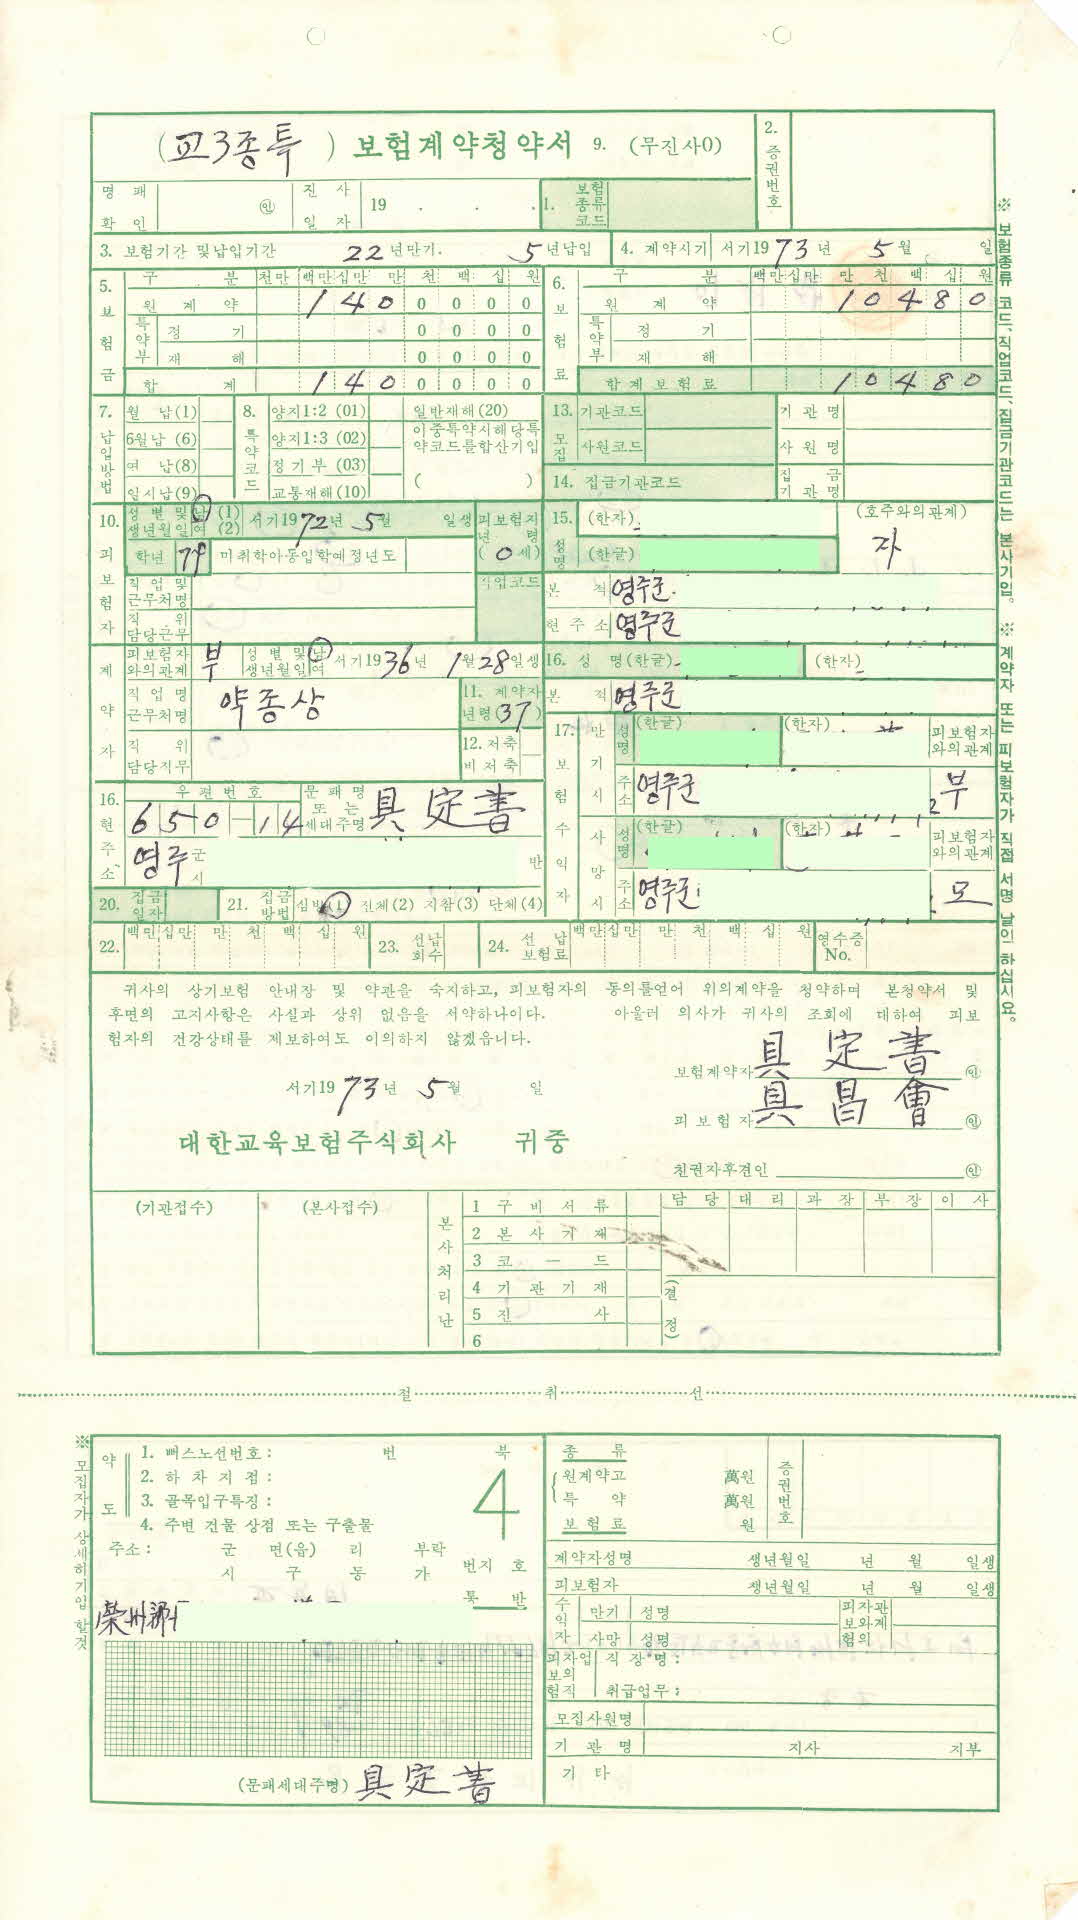 (교3종특) 보험계약청약서 9. (무진사0)
2. 증권번호
명패확인 인 진사일자 19 . . . 1. 보험종류코드
3. 보험기간 및납입기간 22년만기. 5년납입 4. 계약시기 서기1973년 5월 일
5. 보험금 구분 천만 백만 십만 만 천 백 십 원
원계약 1 4 0 0 0 0 0
특약부 정기 0 0 0 0
재해 0 0 0 0
합계 1 4 0 0 0 0 0
6. 보험료 구분 백만 십만 만 천 백 십 원
원계약 1 0 4 8 0
특약부 정기
재해
합계보험료 1 0 4 8 0
7. 납입방법
월납(1)
6월납(6)
여납(8)
일시납(9)
8. 특약코드
양지1:2 (01) 일반재해(20)
양지1:3 (02) 이중특약시해당특약코드를합산기입
정기부 (03)
교통재해(10) ( )
13. 모집 기관코드 기관명
사원코드 사원명
14. 집금기관코드 집금기관명
10. 피보험자
성별및생년월일 남(1) 여(2) 서기1972년 5월 일생 피보험자년령 (0세)
학년 74 미취학아동입학예정년도
직업및근무처명 직업코드
직위담당근무
15. 성명 (한자) (호주와의관계)
(한글) 자
본적 영주군
현주소 영주군
계약자
피보험자와의관계 부 성별및생년월일 남여 서기1936년 1월 28일생
직업명근무처명 약종상 11. 계약자년령(37)
직위담당직무 12. 저축 비저축
16. 성명(한글) (한자)
본적 영주군
17. 보험수익자
만기시 성명 (한글) (한자) 피보험자와의관계
주소 영주군 부
사망시 성명 (한글) (한자) 피보험자와의관계
주소 영주군 모
16. 현주소 우편번호 650-14 문패명또는세대주명 具定書
영주 군시 반
20. 집금일자 21. 집금방법 심방(1) 전체(2) 지참(3) 단체(4)
22. 백만 십만 만 천 백 십 원 23. 선납회수 24. 선납보험료 백만 십만 만 천 백 십 원 영수증No.
귀사의 상기보험 안내장 및 약관을 숙지하고, 피보험자의 동의를얻어 위의계약을 청약하며 본청약서 및
후면의 고지사항은 사실과 상위 없음을 서약하나이다. 아울러 의사가 귀사의 조회에 대하여 피보
험자의 건강상태를 제보하여도 이의하지 않겠읍니다.
서기1973년 5월 일
보험계약자 具定書 인
피보험자 具昌會 인
대한교육보험주식회사 귀중
친권자후견인 인
(기관접수) (본사접수) 본사처리난
1 구비서류
2 본사기재
3 코-드
4 기관기재
5 진사
6
담당 대리 과장 부장 이사
(결정)
※ 보험종류 코드, 직업코드, 집금기관코드는 본사기입。 ※ 계약자 또는 피보험자가 직접 서명 날인 하십시요。
절취선
※ 모집자가 상세히기입 할것
약도
1. 뻐스노선번호: 번 북
2. 하차지점: 4
3. 골목입구특징:
4. 주변 건물 상점 또는 구출물
주소: 군 면(읍) 리 부락
시 구 동 가 번지 호
통 반
榮州郡
(문패세대주명) 具定書
종류
원계약고 萬원
특약 萬원
보험료 원
증권번호
계약자성명 생년월일 년 월 일생
피보험자 생년월일 년 월 일생
수익자 만기 성명 피자관보와계험의
사망 성명
피차업보의험직 직장명:
취급업무:
모집사원명
기관명 지사 지부
기타